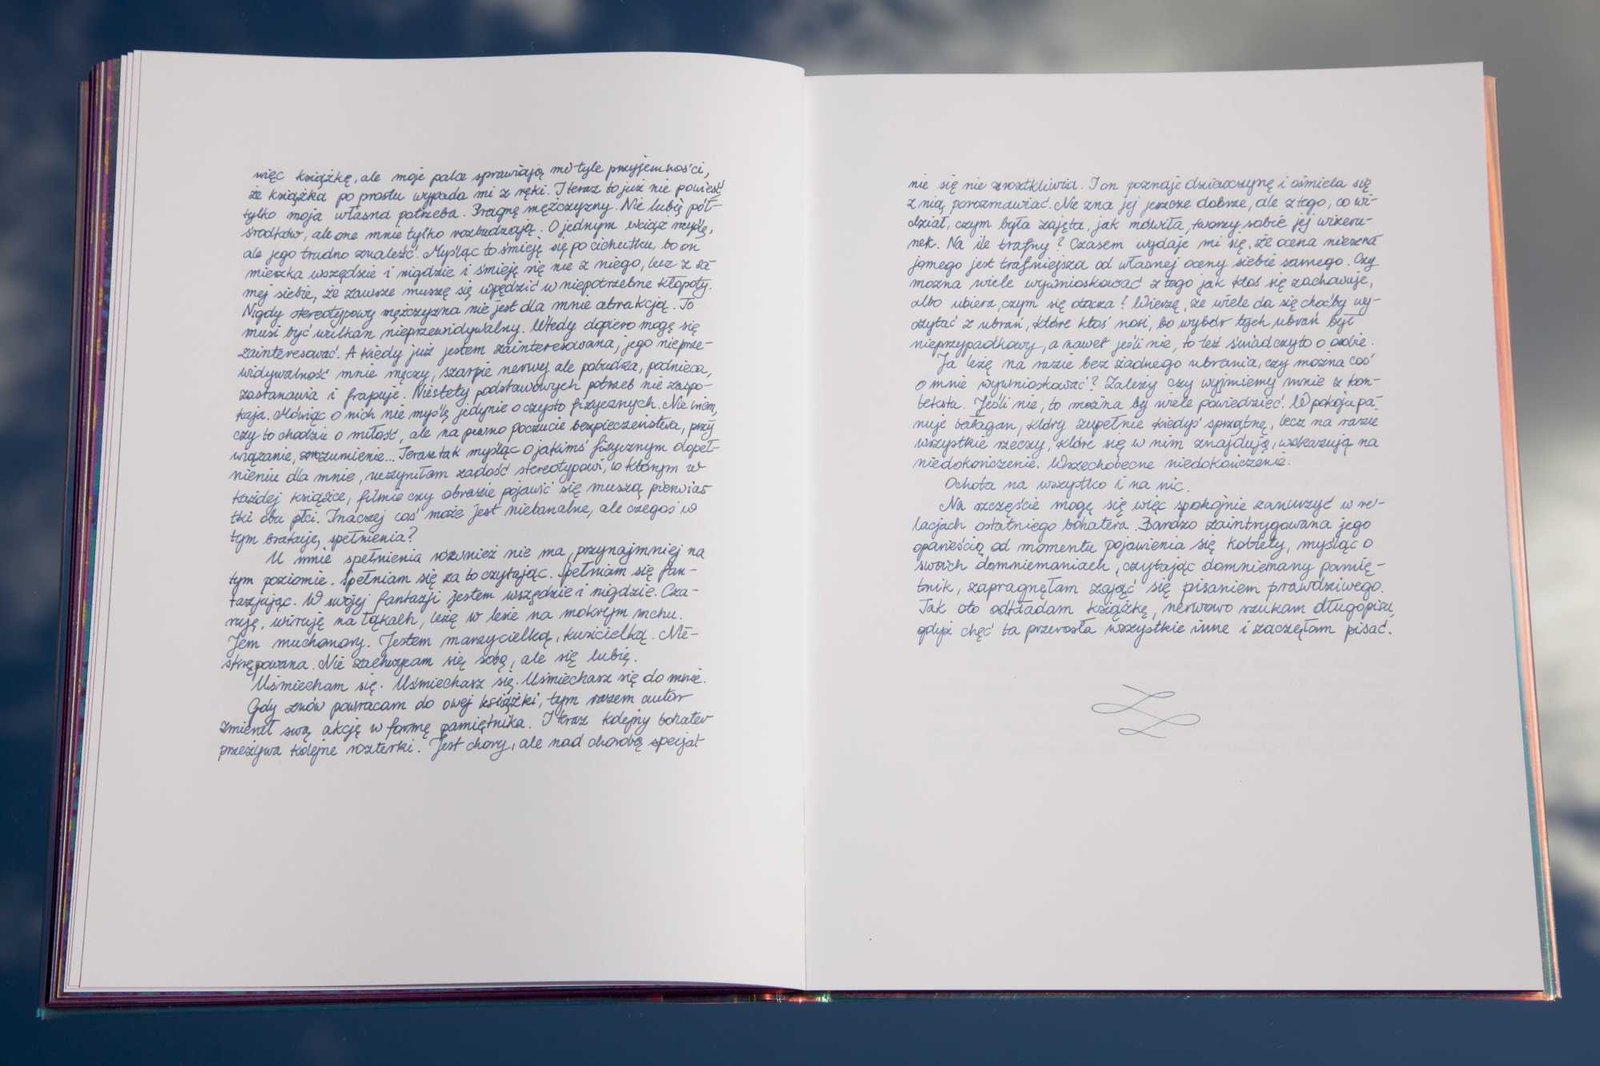 więc książkę, ale moje palce sprawiają mi tyle przyjemności,
że książka po prostu wypada mi z ręki. I teraz to już nie powieść
tylko moja własna potrzeba. Pragnę mężczyzny. Nie lubię pół-
środków, ale one mnie tylko rozbudzają. O jednym wciąż myślę,
ale jego trudno znaleść. Myśląc to śmieję się po cichutku, bo on
mieszka wszędzie i nigdzie i śmieję się nie z niego, lecz z sa-
mej siebie, że zawsze muszę się wpędzić w niepotrzebne kłopoty.
Nigdy stereotypowy mężczyzna nie jest dla mnie atrakcją. To
musi być wulkan nieprzewidywalny. Wtedy dopiero mogę się
zainteresować. A kiedy już jestem zainteresowana, jego nieprze-
widywalność mnie męczy, szarpie nerwy ale pobudza, podnieca,
zastanawia i frapuje. Niestety podstawowych potrzeb nie zaspo-
kaja. Mówiąc o nich nie myślę jedynie o czysto fizycznych. Nie wiem,
czy to chodzi o miłość, ale na pewno poczucie bezpieczeństwa, przy
wiązanie, zrozumienie... Teraz tak myśląc o jakimś fizycznym dopeł-
nieniu dla mnie, uczyniłam zadość stereotypowi, w którym w
każdej książce, filmie czy obrazie pojawić się muszą pierwias
tki obu płci. Inaczej coś może jest niebanalne, ale czegoś w
tym brakuje, spełnienia?
U mnie spełnienia również nie ma, przynajmniej na
tym poziomie. Spełniam się za to czytając. Spełniam się fan-
tazjując. W swojej fantazji jestem wszędzie i nigdzie. Cza-
ruję, wiruję na łąkach, leżę w lesie na mokrym mchu.
Jem muchomory. Jestem marzycielką, kusicielką. Nie-
skrępowana. Nie zachwycam się sobą, ale się lubię.
Uśmiecham się. Uśmiechasz się. Uśmiechasz się do mnie.
Gdy znów powracam do owej książki, tym razem autor
zmienił swą akcję w formę pamiętnika. I teraz kolejny bohater
przeżywa kolejne rozterki. Jest chory, ale nad chorobą specjal
nie się nie roztkliwia. I on poznaje dziewczynę i ośmiela się
z nią porozmawiać. Nie zna jej jeszcze dobrze, ale z tego, co wi-
dział, czym była zajęta, jak mówiła, tworzy sobie jej wizeru-
nek. Na ile trafny? Czasem wydaje mi się, że ocena niezna
jomego jest trafniejsza od własnej oceny siebie samego. Czy
można wiele wywnioskować z tego jak ktoś się zachowuje,
albo ubiera, czym się otacza? Wierzę, że wiele da się choćby wy-
czytać z ubrań, które ktoś nosi, bo wybór tych ubrań był
nieprzypadkowy, a nawet jeśli nie, to też świadczy to o osobie.
Ja leżę na razie bez żadnego ubrania, czy można coś
o mnie wywnioskować? Zależy czy wyjmiemy mnie z kon-
tekstu. Jeśli nie, to można by wiele powiedzieć. W pokoju pa-
nuje bałagan, który zupełnie kiedyś sprzątnę, lecz na razie
wszystkie rzeczy, które się w nim znajdują, wskazują na
niedokończenie. Wszechobecne niedokończenie.
Ochota na wszystko i na nic.
Na szczęście mogę się więc spokojnie zanurzyć w re-
lacjach ostatniego bohatera. Bardzo zaintrygowana jego
opowieścią od momentu pojawienia się kobiety, myśląc o
swoich domniemaniach, czytając domniemany pamię-
tnik, zapragnęłam zająć się pisaniem prawdziwego.
Tak oto odkładam książkę, nerwowo szukam długopisu,
gdyż chęć ta przerosła wszystkie inne i zaczęłam pisać.